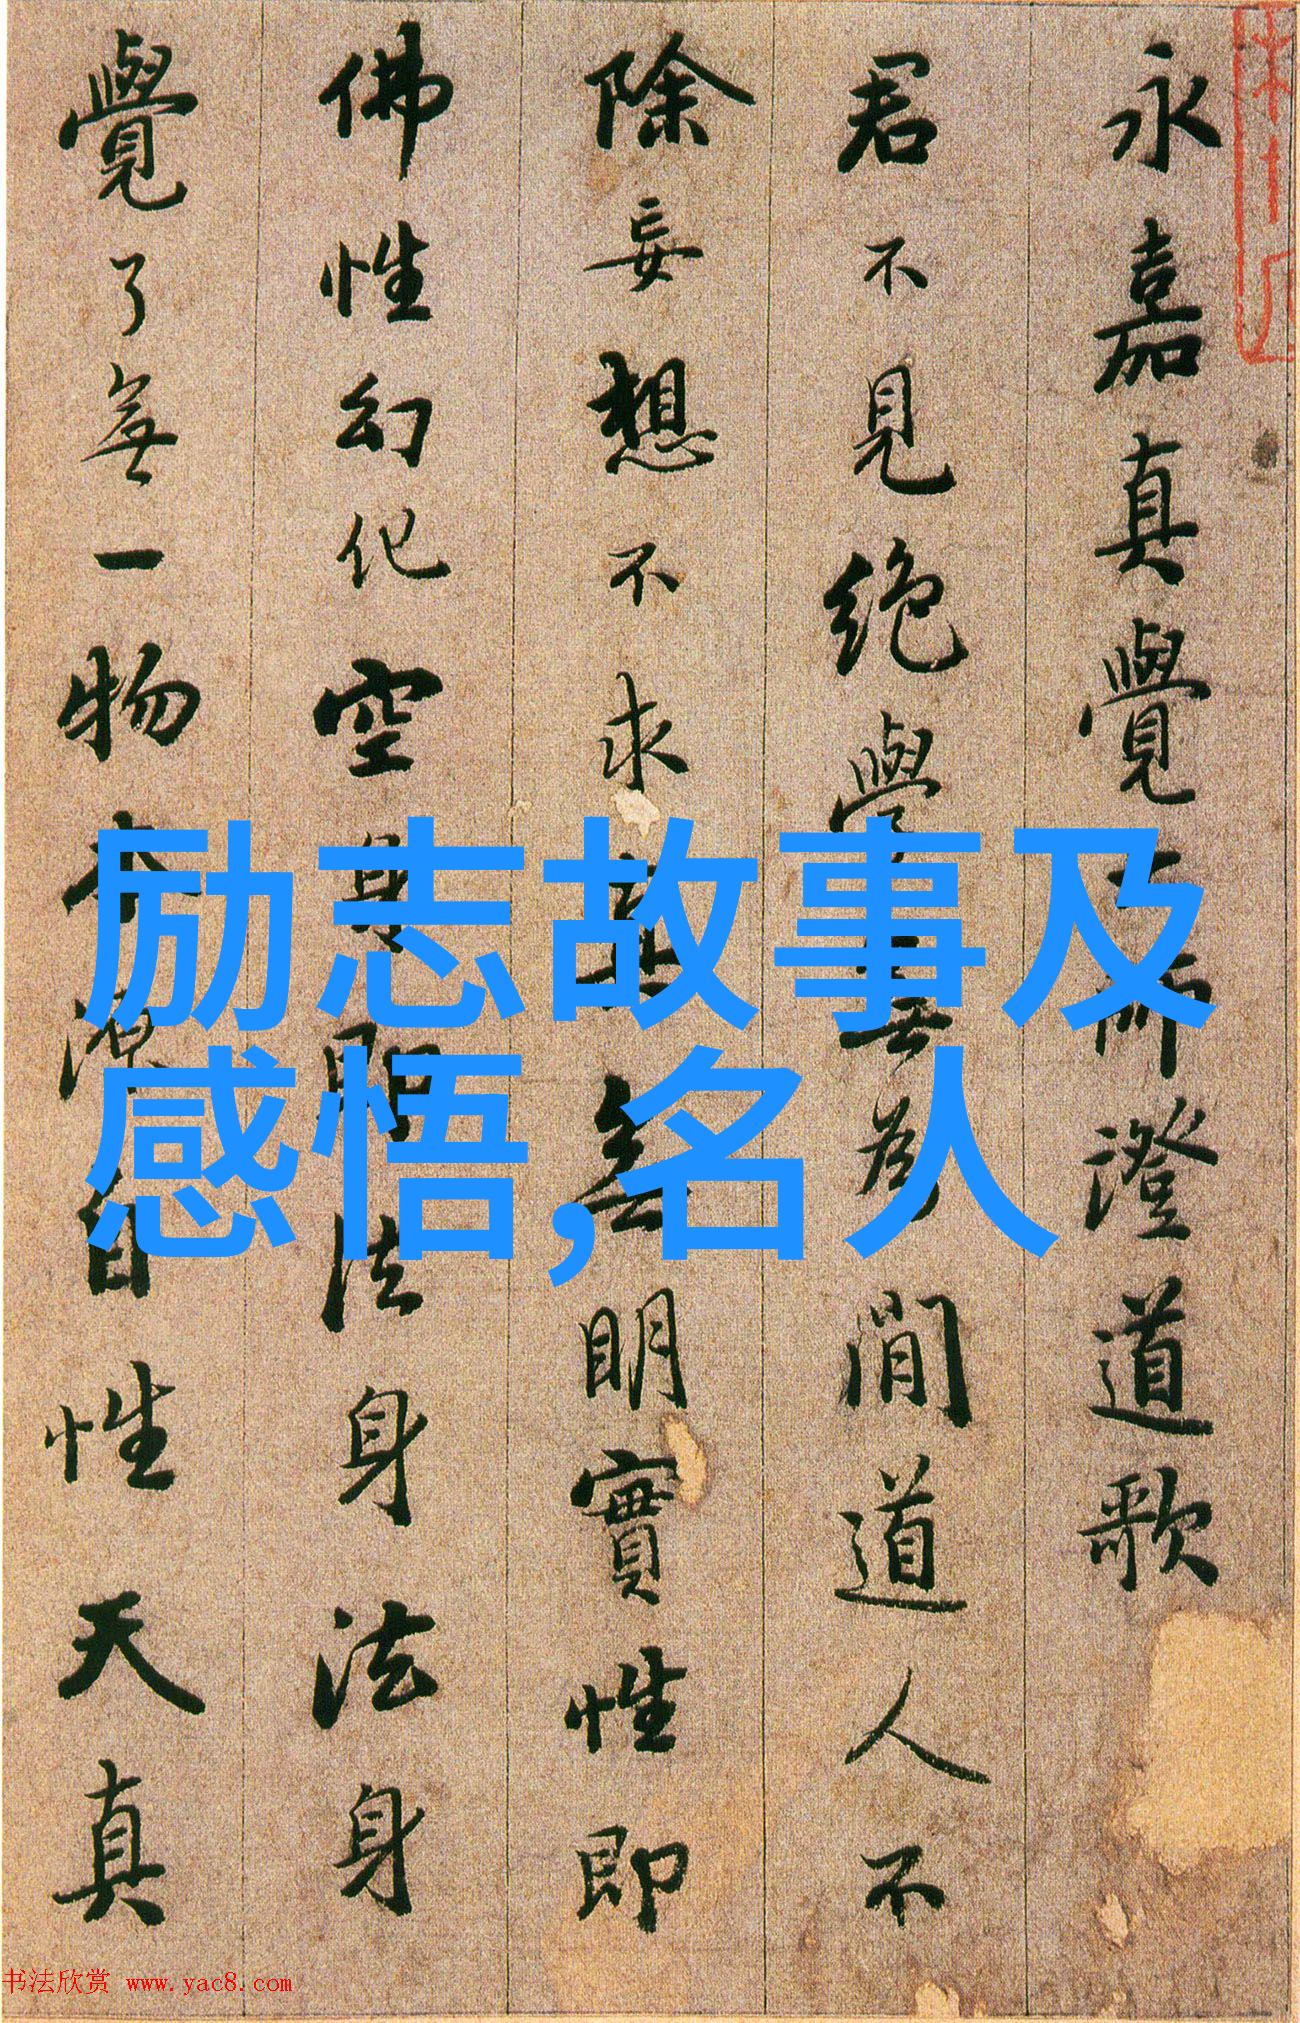 永嘉真覺大師澄道歌
君不見絶學無為閒道人不
除妄想不求真無明實性即
佛性幻化空身即法身法身
覺了無一物本源自性天真
励志故事及
感悟,名人
书法欣赏 www.yac8.com